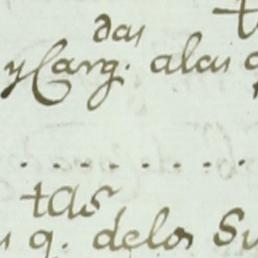 das
y Carg. alas
. . . . . . . .
tas
q. delos Su